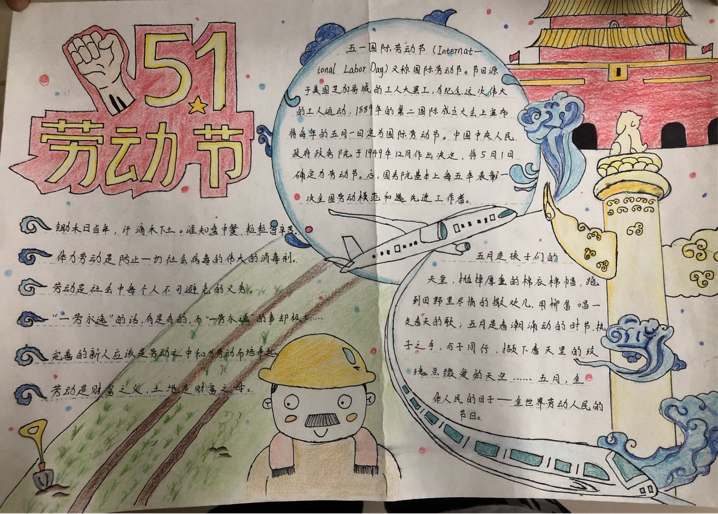 5.1
劳动节
五一国际劳动节（Internat-
ional Labor Day）又称国际劳动节。节日源
于美国芝加哥城的工人大罢工，为纪念这次伟大
的工人运动，1889年的第二国际成立大会上宣布
将每年的五月一日定为国际劳动节。中国中央人民
政府政务院于1949年12月作出决定，将5月1日
确定为劳动节。后，国务院基本上每五年表彰一
次全国劳动模范和 先进工作者。
锄禾日当午，汗滴禾下土。谁知盘中餐，粒粒
体力劳动是防止一切社会病毒的伟大的消毒剂。
劳动是社会中每个人不可避免的义务。
“一劳永逸”的话，有是有的，而“一劳永逸”的事却极
完善的新人应该是劳动之中和为劳动而培养
劳动是财富之父，土地是财富之母。
五月是孩子们的
天堂，抛掉厚重的棉衣棉帽，跑
到田野里尽情的撒处儿，用柳笛唱一
支春天的歌；五月是春潮涌动的时节，执
子之手，与子同行，撒下春天里的玫
瑰点缀爱的天空……五月，全
体人民的日子——全世界劳动人民的
节日。